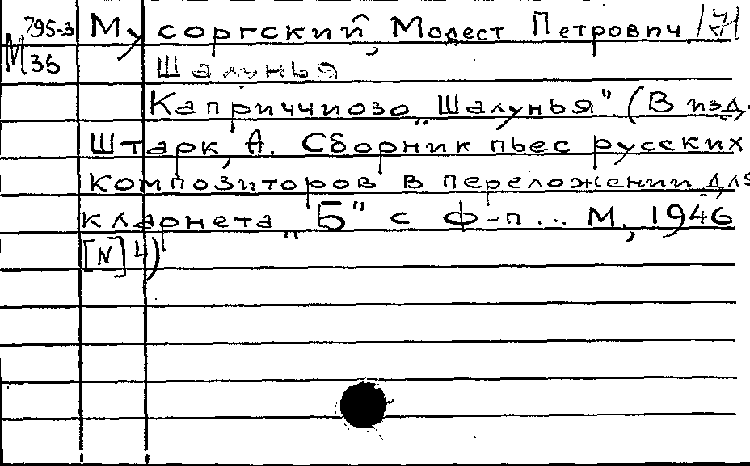 795-3 Мусоргский, Модест Петрович
М36 Шалунья
Каприччиозо „Шалунья" (В изд.
Штарк, А. Сборник пьес русских
композиторов в переложении для
кларнета „Б" с ф-п... М., 1946
[N] 4)